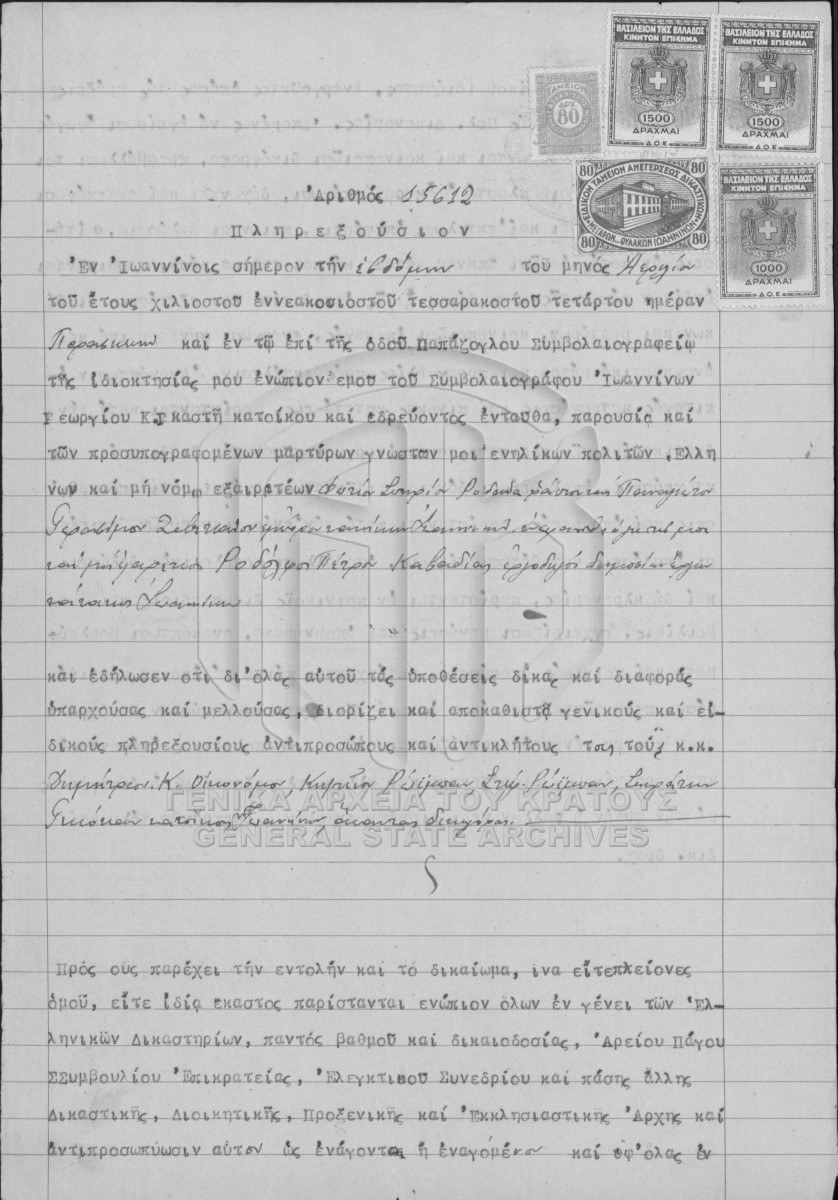 ΒΑΣΙΛΕΙΟΝ ΤΗΣ ΕΛΛΑΔΟΣ
ΚΙΝΗΤΟΝ ΕΠΙΣΗΜΑ
1500
ΔΡΑΧΜΑΙ
Δ.Ο.Ε
ΒΑΣΙΛΕΙΟΝ ΤΗΣ ΕΛΛΑΔΟΣ
ΚΙΝΗΤΟΝ ΕΠΙΣΗΜΑ
1500
ΔΡΑΧΜΑΙ
Δ.Ο.Ε
ΤΑΜΕΙΟΝ
ΔΡΧ
80
80 ΕΙΔΙΚΟΝ ΤΑΜΕΙΟΝ ΑΝΕΓΕΡΣΕΩΣ ΔΙΚΑΣΤΙΚΟΝ 80
80 ΜΕΓΑΡΟΝ ΦΥΛΑΚΩΝ ΙΩΑΝΝΙΝΩΝ 80
ΒΑΣΙΛΕΙΟΝ ΤΗΣ ΕΛΛΑΔΟΣ
ΚΙΝΗΤΟΝ ΕΠΙΣΗΜΑ
1000
ΔΡΑΧΜΑΙ
Δ.Ο.Ε
Ἀριθμός 15612
Πληρεξούσιον
Ἐν Ἰωαννίνοις σήμερον τήν εβδόμην τοῦ μηνός Απριλίου
τοῦ ἔτους χιλιοστοῦ ἐννεακοσιοστοῦ τεσσαρακοστοῦ τετάρτου ἡμέραν
Παρασκευήν καί ἐν τῷ ἐπί τῆς ὁδοῦ Παπάζογλου Συμβολαιογραφείῳ
τῆς ἰδιοκτησίας μου ἐνώπιον ἐμου τοῦ Συμβολαιογράφου Ἰωαννίνων
Γεωργίου Κ.Γκαστῆ κατοίκου καί ἑδρεύοντος ἐνταῦθα, παρουσίᾳ καί
τῶν προσυπογραφομένων μαρτύρων γνώστων μοι ἐνηλίκων πολιτῶν Ἑλλη
νων καί μή νόμῳ ἐξαιρετέων Φωτίου Σπυρίου Παναγιώτου
Γερασίμου
Ροδόλφος Πέτρου Καβαδίας ἐργοδηγός δημοσίων ἔργων
κάτοικος Ιωαννίνων
και ἐδήλωσεν ὅτι δι'ὅλας αὐτοῦ τάς ὑποθέσεις δίκας καί διαφοράς
ὑπαρχούσας καί μελλούσας, διορίζει καί ἀποκαθιστᾷ γενικούς καί εἰ-
δικούς πληρεξουσίους ἀντιπροσώπους καί ἀντικλήτους του τούς κ.κ.
Δημήτριον Κ. Οἰκονόμου, Στεφ. Σωκράτην
κατοίκους Ιωαννίνων, ἅπαντας δικηγόρους.
ΓΕΝΙΚΑ ΑΡΧΕΙΑ ΤΟΥ ΚΡΑΤΟΥΣ
GENERAL STATE ARCHIVES
Πρός οὕς παρέχει τήν ἐντολήν καί τό δικαίωμα, ἵνα εἴτεπλείονες
ὁμοῦ, εἴτε ἰδίᾳ ἕκαστος παρίστανται ἐνώπιον ὅλων ἐν γένει τῶν Ἑλ-
ληνικῶν Δικαστηρίων, παντός βαθμοῦ καί δικαιοδοσίας, Ἀρείου Πάγου
ΣΣυμβουλίου Ἐπικρατείας, Ἐλεγκτικοῦ Συνεδρίου καί πάσης ἄλλης
Δικαστικῆς, Διοικητικῆς, Προξενικῆς καί Ἐκκλησιαστικῆς Ἀρχης καί
ἀντιπροσωπύωσιν αὐτον ὡς ἐνάγοντα ἤ ἐναγομένον καί ὑφ'ὅλας ἐν